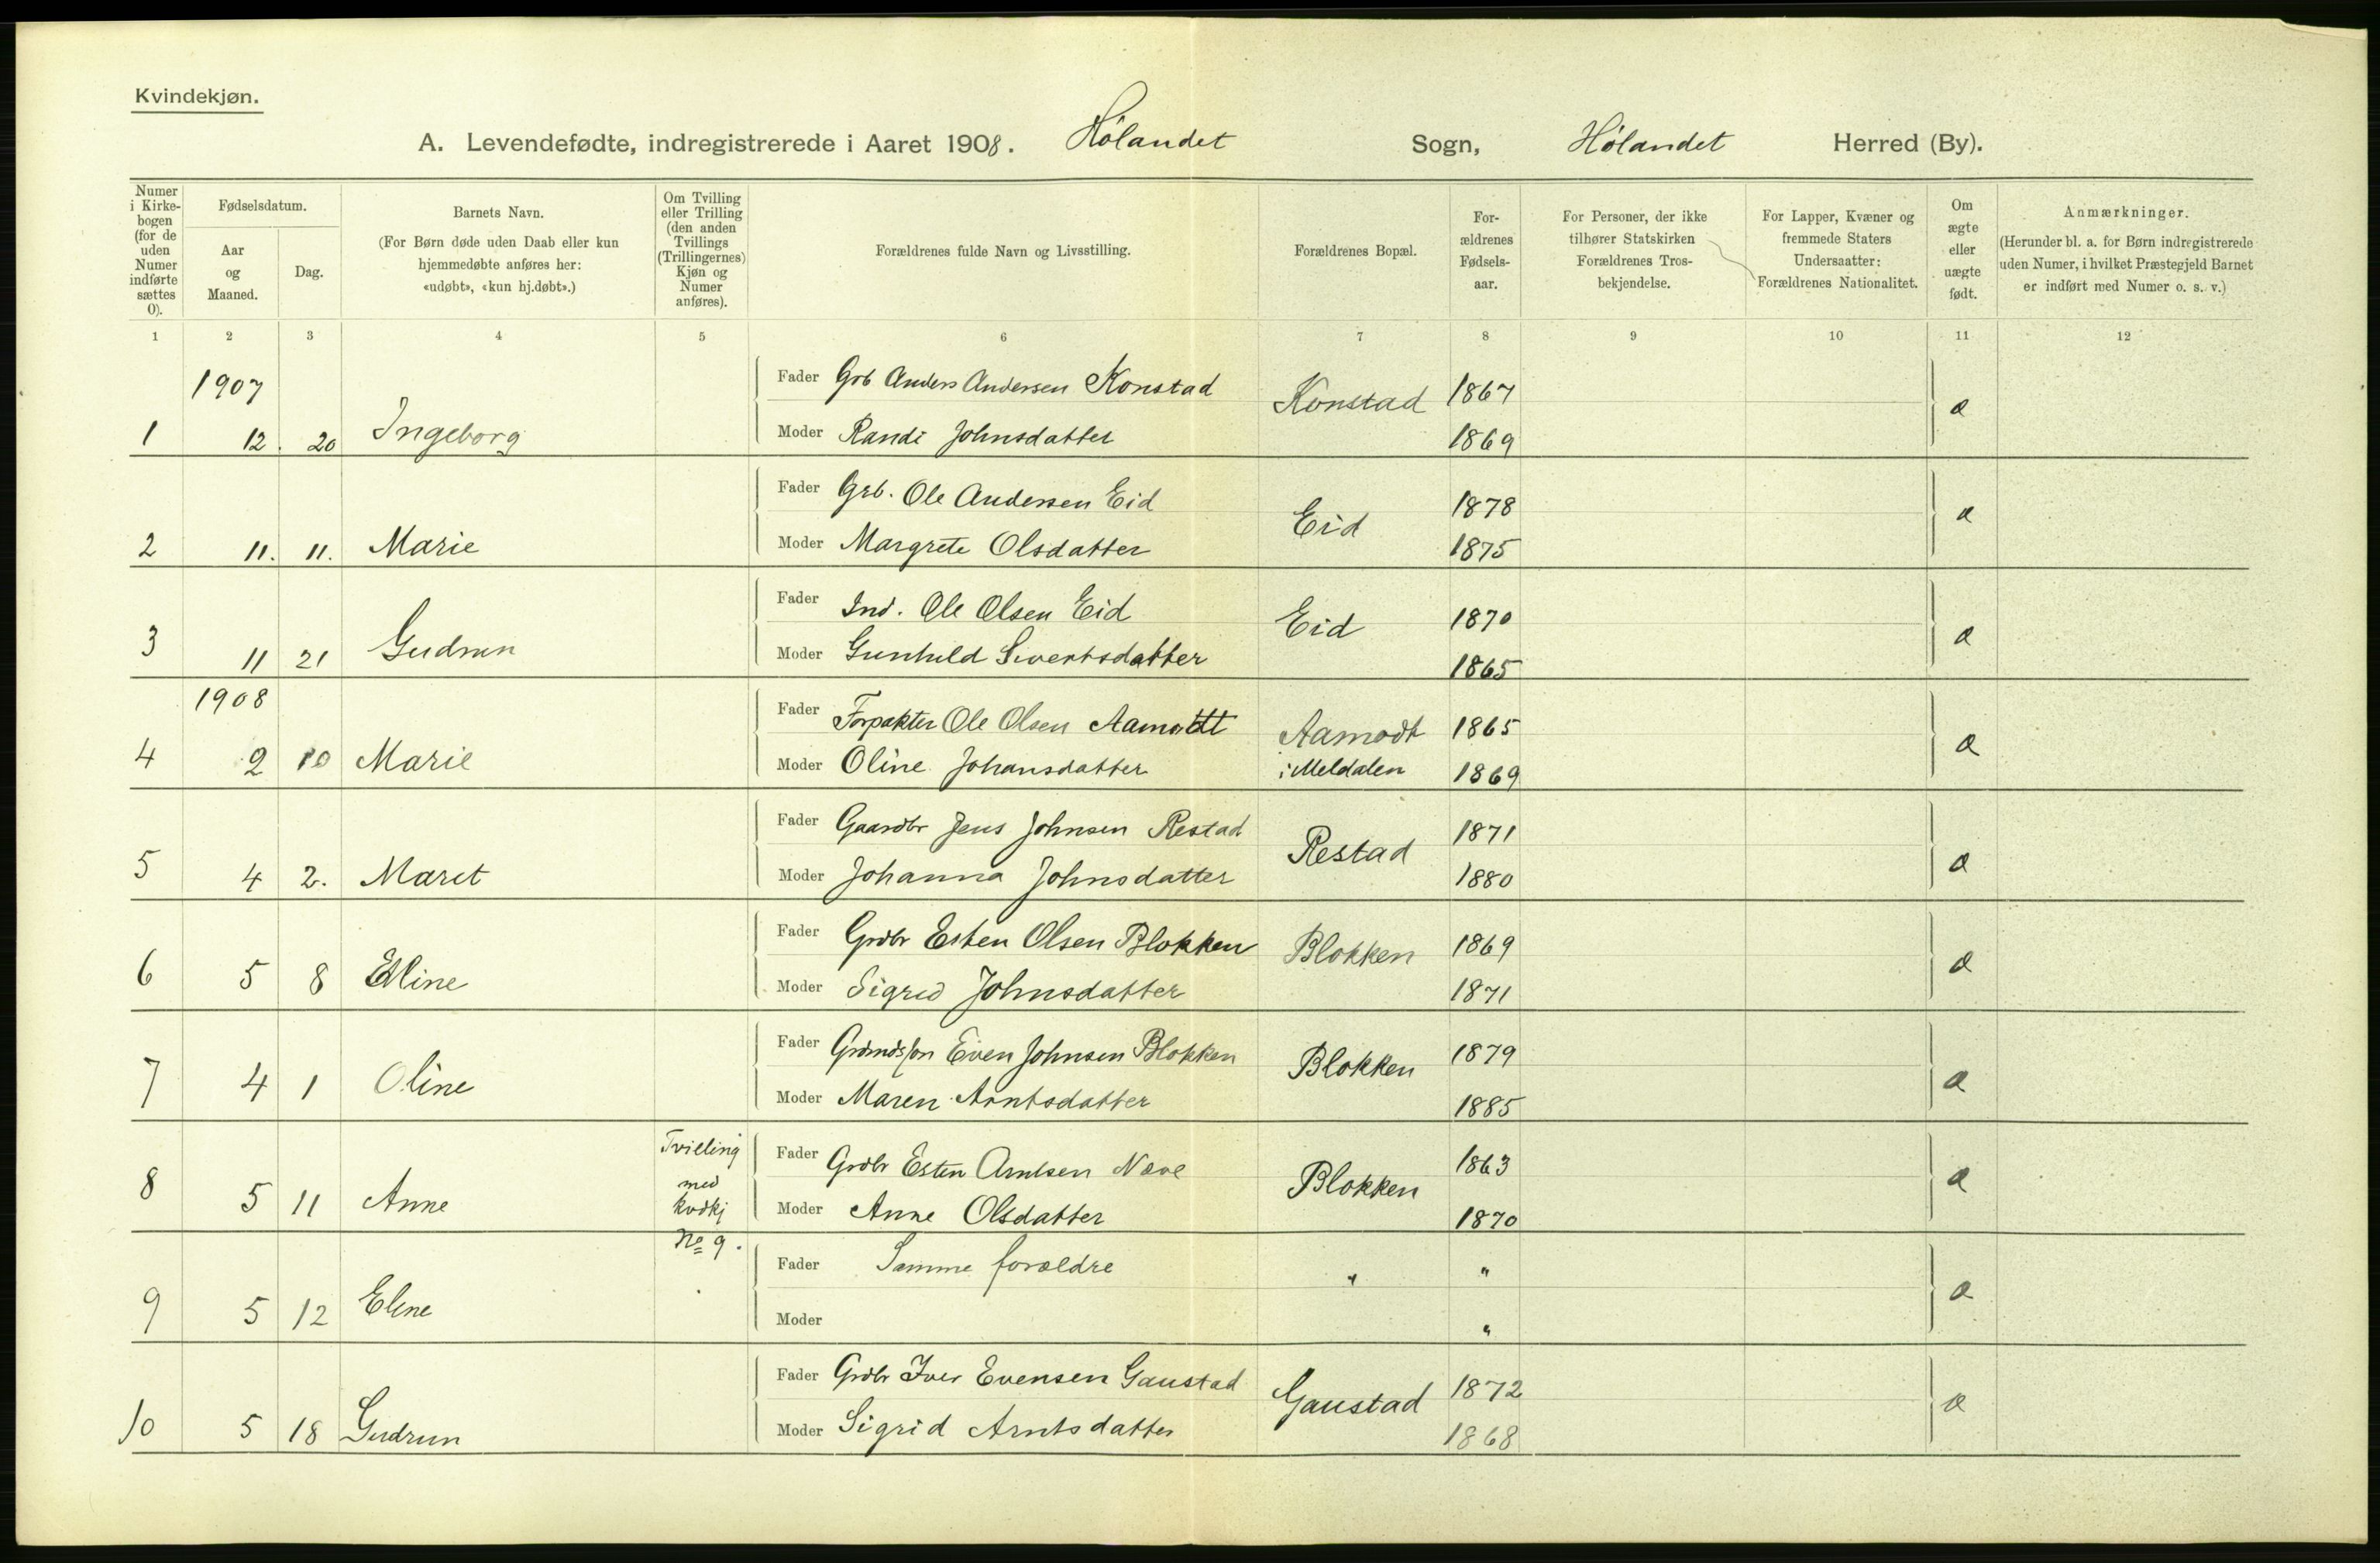 Kvindekjøn.
A. Levendefødte, indregistrerede i Aaret 1908. Hölandet Sogn, Hölandet Herred (By).
Numer i Kirkebogen (for de uden Numer indførte sættes 0).
Fødselsdatum.
Aar og Maaned.
Dag.
Barnets Navn.
(For Børn døde uden Daab eller kun hjemmedøbte anføres her: «udøbt», «kun hj.døbt».)
Om Tvilling eller Trilling (den anden Tvillings (Trillingernes) Kjøn og Numer anføres).
Forældrenes fulde Navn og Livsstilling.
Forældrenes Bopæl.
Forældrenes Fødselsaar.
For Personer, der ikke tilhører Statskirken Forældrenes Trosbekjendelse.
For Lapper, Kvæner og fremmede Staters Undersaatter: Forældrenes Nationalitet.
Om ægte eller uægte født.
Anmærkninger.
(Herunder bl. a. for Børn indregistrerede uden Numer, i hvilket Præstegjeld Barnet er indført med Numer o. s. v.)
1 2 3 4 5 6 7 8 9 10 11 12
1907
Fader Grb Anders Andersen Konstad Konstad 1867 æ
1 12. 20 Ingeborg Moder Randi Johnsdatter 1869
Fader Grb. Ole Andersen Eid Eid 1878 æ
2 11. 11. Marie Moder Margrete Olsdatter 1875
Fader Ind. Ole Olsen Eid Eid 1870 æ
3 11 21 Gudrun Moder Gunhild Sivertsdatter 1865
1908
Fader Forpakter Ole Olsen Aamodt Aamodt 1865 æ
4 2 10 Marie Moder Oline Johansdatter i Meldalen 1869
Fader Gaardbr Jens Johnsen Restad Restad 1871 æ
5 4 2. Maret Moder Johanna Johnsdatter 1880
Fader Grdbr Esten Olsen Blokken Blokken 1869 æ
6 5 8 Eline Moder Sigrid Johnsdatter 1871
Fader Even Johnsen Blokken Blokken 1879 æ
7 4 1 Oline Moder Maren Arntsdatter 1885
Tvilling Fader Grdbr Esten Arntsen Næve Blokken 1863 æ
8 5 11 Anne med kvdkj Moder Anne Olsdatter 1870
No 9.
Fader Samme forældre " " æ
9 5 12 Eline Moder "
Fader Grdbr Iver Evensen Gaustad Gaustad 1872 æ
10 5 18 Gudrun Moder Sigrid Arntsdatter 1868